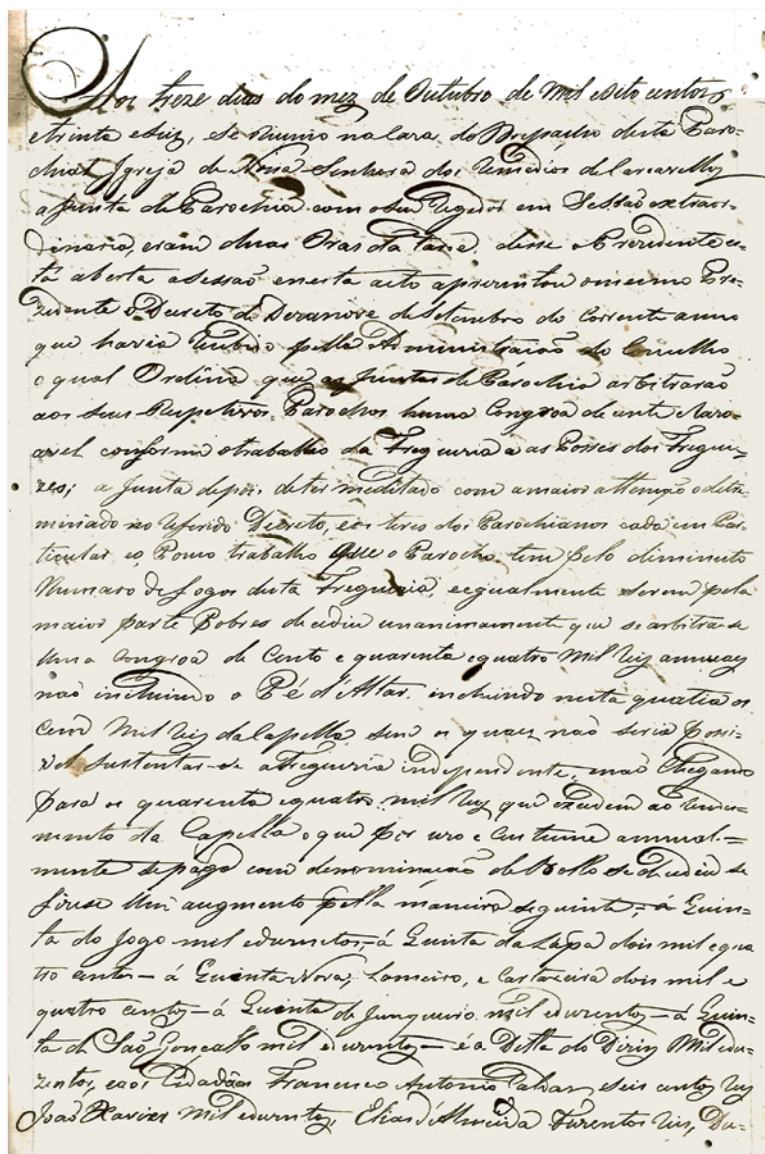 Aos treze dias do mez de Outubro de mil e oito centos
e trinta e seis, se riunio na Caza do Despacho desta Paro-
chial Igreja de Nossa Senhora dos Remedios de Carcavellos
a Junta de Parochia com o seu Regedor em Sessão extraor-
dinaria, eram duas Oras da tarde, disse o Prezidente es-
tá aberta a Sessaõ e nesta acto aprezentou o mesmo Pre-
zidente o Decreto de Dezanove de Setembro do Corrente anno
que havia recebido pella Administraçaõ do Concelho
o qual Ordena que as Juntas de Parochia arbitraraõ
aos seus Respetivos Parochos huma Congroa decente e laro-
avel conforme o trabalho da Freguezia e as Posses dos Fregue-
zes; a Junta depois de ter meditado com a maior attenção o deter-
minado no referido Decreto, e os teres dos Parochianos cada um Par-
ticular e o Pouco trabalho que o Parocho tem pelo diminuto
Numaro de fogos desta Freguezia, e egualmente serem pela
maior parte Pobres decediu unanimamente que se arbitra-se
uma Congroa de Cento e quarenta e quatro mil reis annuaes
naõ incluindo o Pé d'Altar, incluindo nesta quatia os
cem mil reis da Capella, sem os quaes naõ seria possi-
vel sustentar-se a Freguezia independente, e naõ Chegando
para os quarenta e quatro mil reis que excedem ao rendi-
mento da Capella o que por uzo e custume annual-
mente se paga com denominaçaõ de Bollo se decediu se
fizese um augmento pella maneira seguinte, á Quin-
ta do Jogo mil e duzentos, á Quinta da Lapa dois mil e qua
tro centos — á Quinta Nova, Lameiro, e Cartaxeira dois mil e
quatro centos — á Quinta do Junqueiro mil e duzentos — á Quin-
ta de Saõ Goncallo mil e duzentos — é a Detta do Diriz Mil e du-
zentos, e aos Cidadãos Francisco Antonio Caldas, seis centos reis
João Xavier mil e duzentos, Elias d'Almeida Duzentos reis, Du-